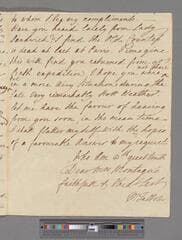 to whom I beg my compliments
Have you heard lately from Lady
Sandwich? I find the Old Countess
is dead at last at Paris. I imagine
this will find you returned from your
expedition. I hope you were
in a more dry situation during the
late very remarkably wet Weather
let me have the favour of hearing
from you soon, in the mean time
I shall flatter my self with the hopes
of a favourable Answer to my request
who am wth great truth
Dear Mrs Montagu
faithfull &